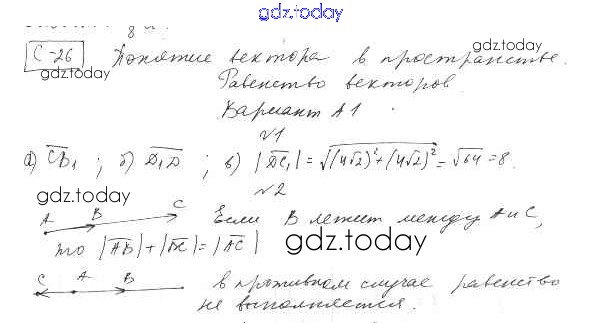 gdz.today
С-26 Понятие вектора в пространстве.
gdz.today
gdz.today
Равенство векторов
Вариант А1
√1
а) CB₁ ; б) D₁D ; в) |DC₁| = √(4√2)² + (4√2)² = √64 = 8.
√2
gdz.today
A B C Если В лежит между А и С,
то |AB| + |BC| = |AC|
gdz.today
C A B в противном случае равенство
не выполняется.
gdz.today